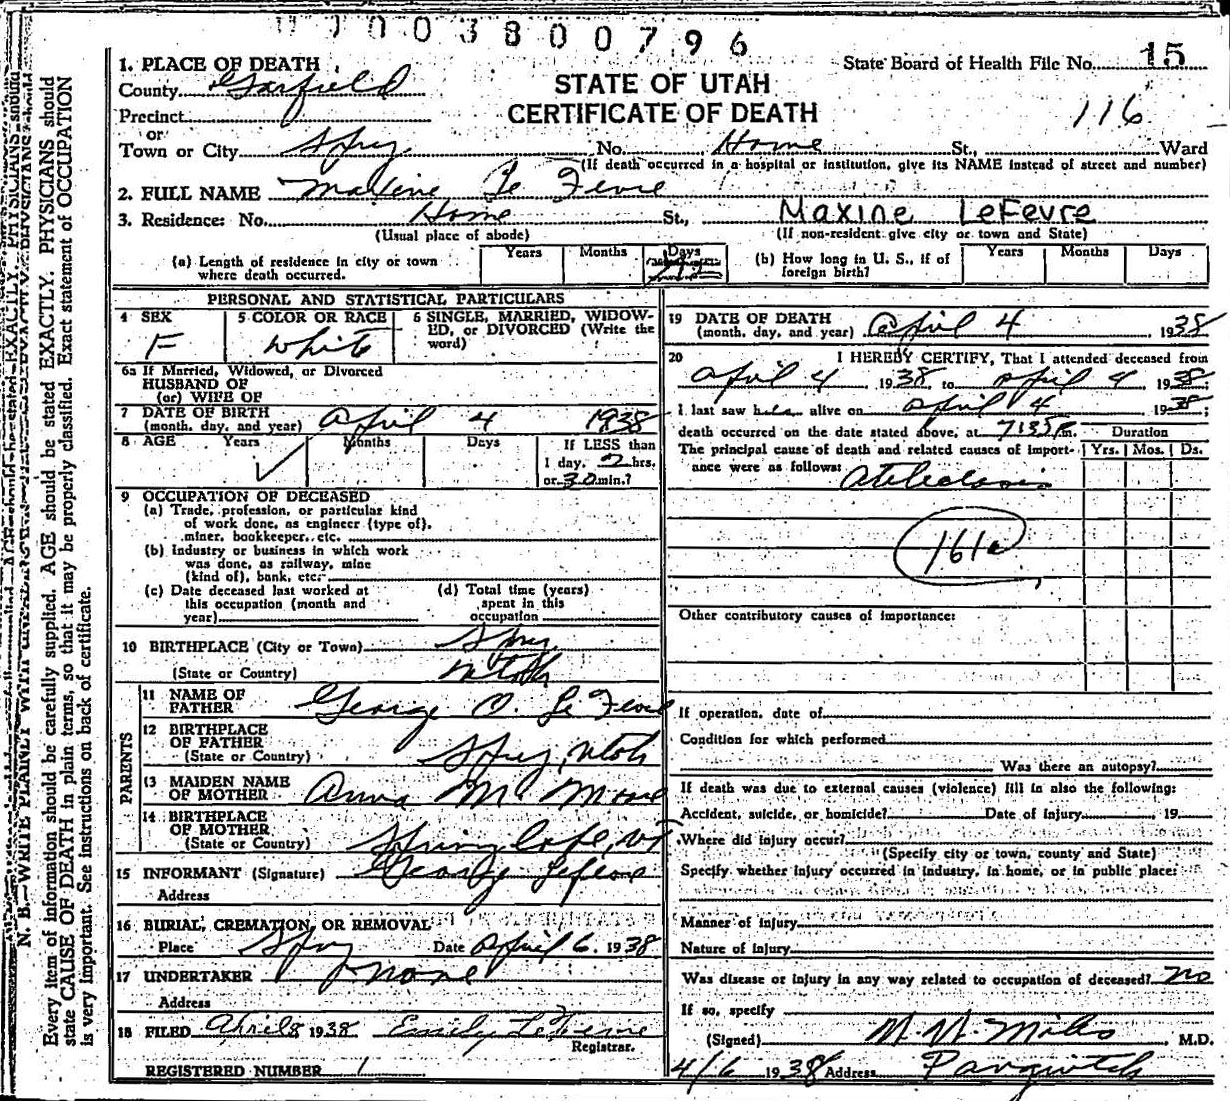 003800796
1. PLACE OF DEATH
State Board of Health File No. 15
County Garfield
STATE OF UTAH
CERTIFICATE OF DEATH
116
Precinct
or
Town or City Spry No. Home St., Ward
(If death occurred in a hospital or institution, give its NAME instead of street and number)
2. FULL NAME Maxine Le Fevre
3. Residence: No. Home St., Maxine LeFevre
(Usual place of abode) (If non-resident give city or town and State)
(a) Length of residence in city or town where death occurred. Years Months Days
(b) How long in U. S., if of foreign birth? Years Months Days
PERSONAL AND STATISTICAL PARTICULARS
4 SEX F
5 COLOR OR RACE White
6 SINGLE, MARRIED, WIDOWED, or DIVORCED (Write the word)
6a If Married, Widowed, or Divorced
HUSBAND OF
(or) WIFE OF
7 DATE OF BIRTH
(month, day, and year) April 4 1938
8 AGE Years Months Days
If LESS than
1 day, 2 hrs.
or 30 min.?
9 OCCUPATION OF DECEASED
(a) Trade, profession, or particular kind
of work done, as engineer (type of),
miner, bookkeeper, etc.
(b) Industry or business in which work
was done, as railway, mine
(kind of), bank, etc.
(c) Date deceased last worked at
this occupation (month and
year)
(d) Total time (years)
spent in this
occupation
10 BIRTHPLACE (City or Town) Spry
(State or Country) Utah
PARENTS
11 NAME OF
FATHER George O. Le Fevre
12 BIRTHPLACE
OF FATHER
(State or Country) Spry, Utah
13 MAIDEN NAME
OF MOTHER Anna M Moore
14 BIRTHPLACE
OF MOTHER
(State or Country) Spring Lake, UT
15 INFORMANT (Signature) George Lefevre
Address
16 BURIAL, CREMATION, OR REMOVAL
Place Spry Date April 6, 1938
17 UNDERTAKER none
Address
18 FILED April 8 1938 Emily LeFevre
Registrar.
REGISTERED NUMBER 1
19 DATE OF DEATH
(month, day, and year) April 4 1938
20 I HEREBY CERTIFY, That I attended deceased from
April 4 1938, to April 4 1938;
I last saw h alive on April 4 1938;
death occurred on the date stated above, at 7:35 P.m.
Duration
The principal cause of death and related causes of importance were as follows: Yrs. Mos. Ds.
Atelectasis
161a
Other contributory causes of importance:
If operation, date of
Condition for which performed
Was there an autopsy?
If death was due to external causes (violence) fill in also the following:
Accident, suicide, or homicide? Date of injury 19
Where did injury occur?
(Specify city or town, county and State)
Specify whether injury occurred in industry, in home, or in public place:
Manner of injury
Nature of injury
Was disease or injury in any way related to occupation of deceased? no
If so, specify
(Signed) M. W. Miles, M.D.
4/6 1938 Address Panguitch
Every item of information should be carefully supplied. AGE should be stated EXACTLY. PHYSICIANS should
state CAUSE OF DEATH in plain terms, so that it may be properly classified. Exact statement of OCCUPATION
is very important. See instructions on back of certificate.